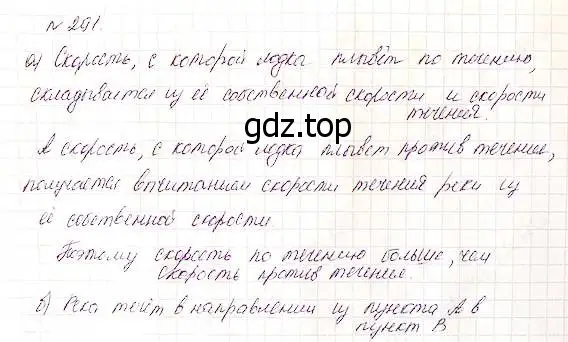 № 291.
а) Скорость, с которой лодка плывёт по течению,
складывается из её собственной скорости и скорости
течения.
gdz.top
А скорость, с которой лодка плывёт против течения,
получается вычитанием скорости течения реки из
её собственной скорости.
Поэтому скорость по течению больше, чем
скорость против течения.
б) Река течёт в направлении из пункта А в
пункт В